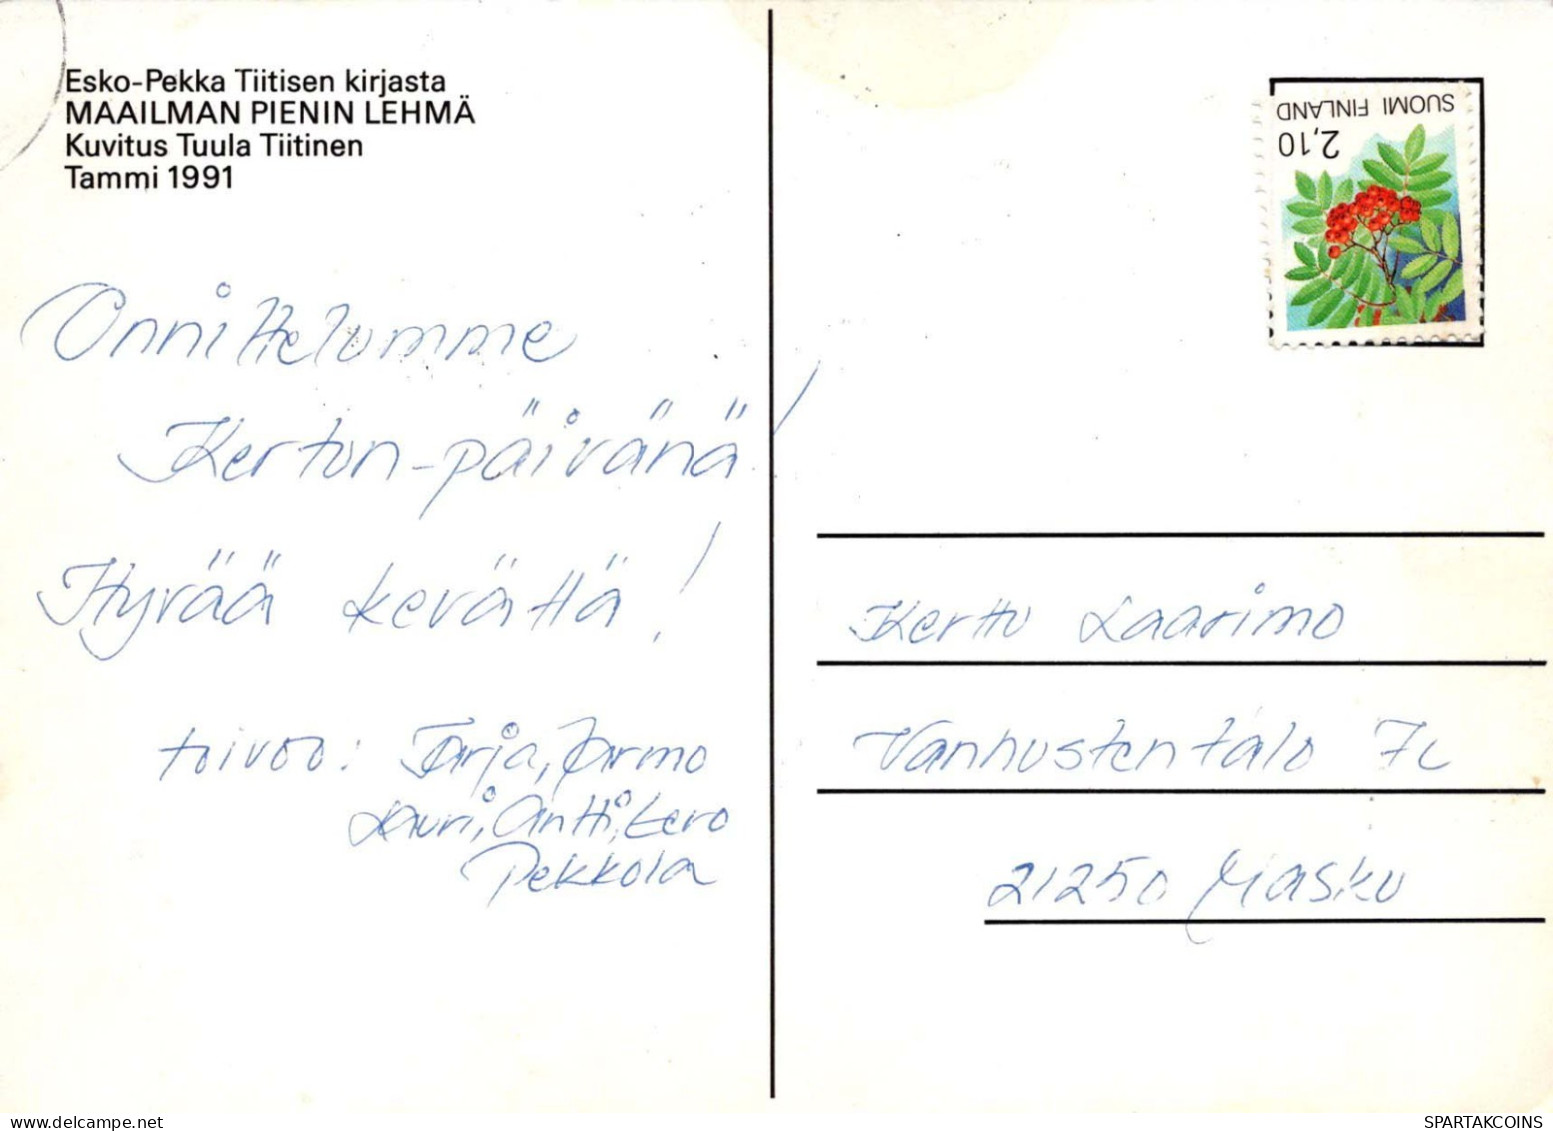 Esko-Pekka Tiitisen kirjasta
MAAILMAN PIENIN LEHMÄ
Kuvitus Tuula Tiitinen
Tammi 1991
Onnittelumme
Kertun-päivänä!
Hyvää kevättä!
toivoo: Tarja, Jarmo
Lauri, Antti, Eero
Pekkola
SUOMI FINLAND
2,10
Kerttu Laarimo
Vanhusten talo 7c
21250 Masku
https://www.delcampe.net
SPARTAKCOINS